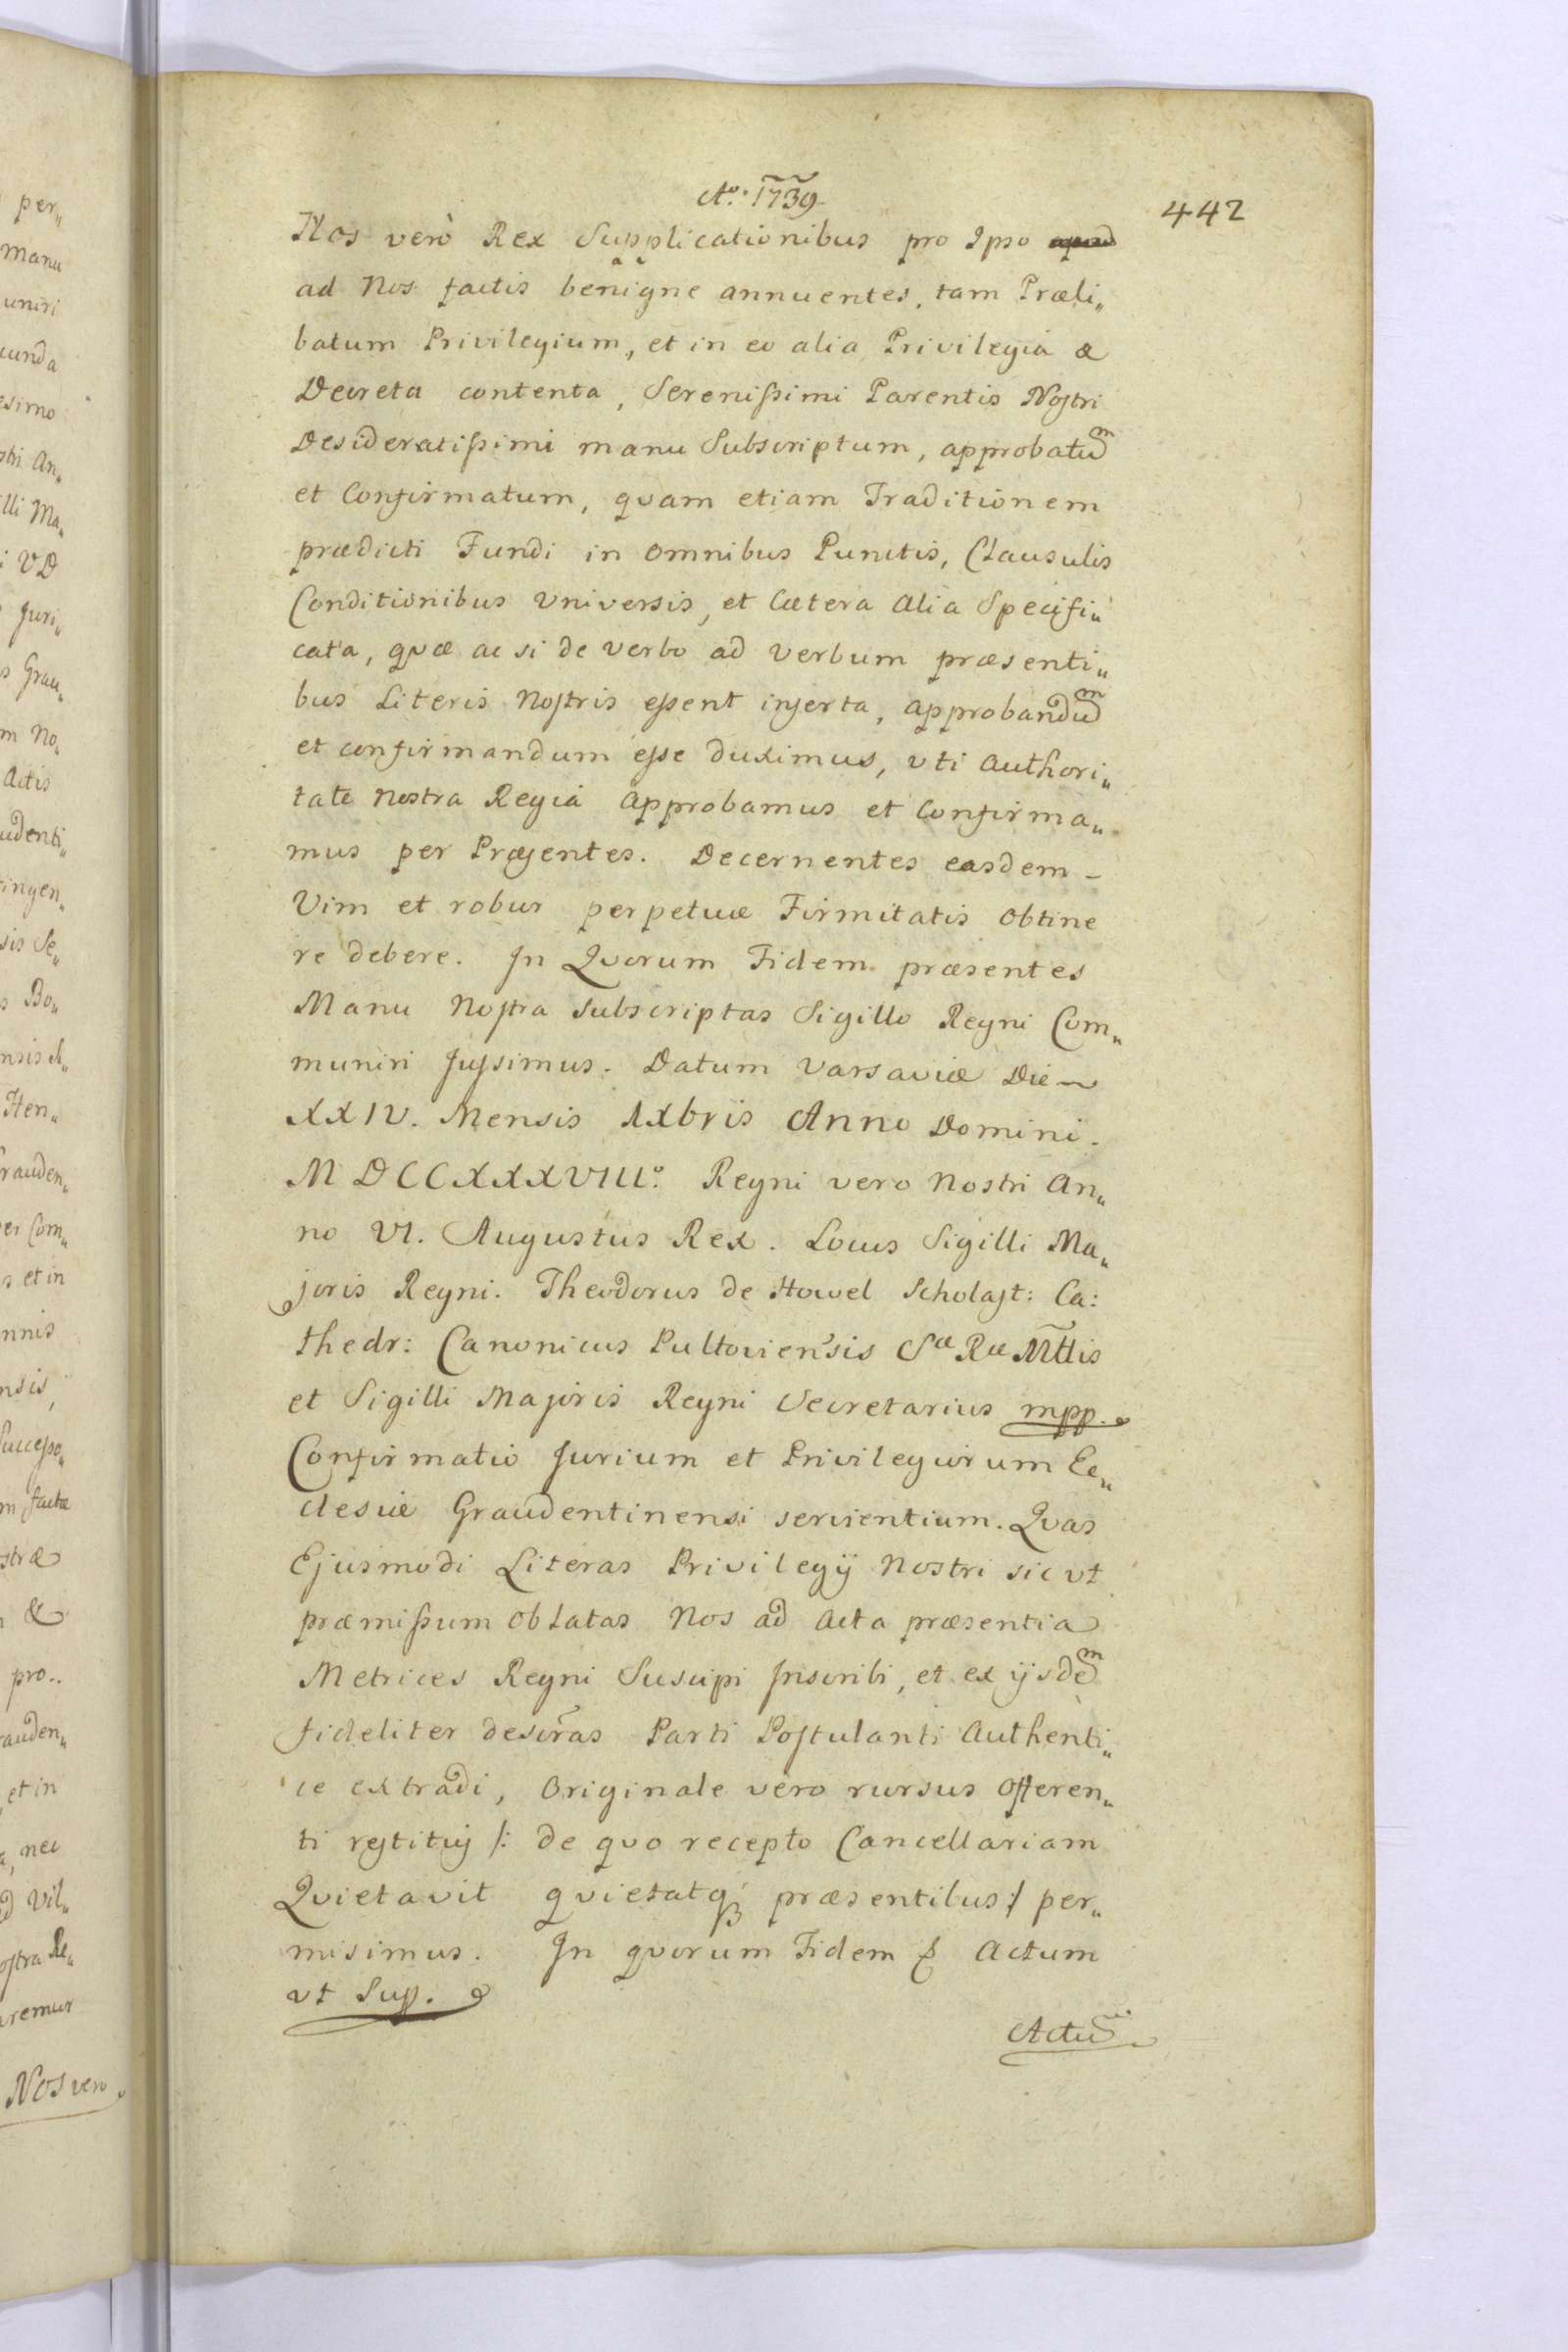 Aº. 1739
442
Nos verò Rex Supplicationibus pro Ipso apud
ad Nos factis benigne annuentes, tam Præli„
batum Privilegium, et in eo alia Privilegia &
Decreta contenta, Serenißimi Parentis Nostri
Desideratißimi manu Subscriptum, approbatum
et Confirmatum, quam etiam Traditionem
prædicti Fundi in omnibus Punctis, Clausulis
Conditionibus Universis, et Cætera alia Specifi„
cata, quæ ac si de verbo ad verbum præsenti„
bus Literis Nostris essent inserta, approbandum
et confirmandum esse duximus, uti Authori„
tate Nostra Regiâ approbamus et Confirma„
mus per Præsentes. Decernentes easdem –
Vim et robur perpetuæ Firmitatis obtine
re debere. In Quorum Fidem præsentes
Manu Nostra subscriptas Sigillo Regni Com„
muniri Jussimus. Datum Varsaviæ Die
XXIV. Mensis IXbris Anno Domini.
MDCCXXXVIIIº. Regni vero Nostri An„
no VI. Augustus Rex. Locus Sigilli Ma„
joris Regni. Theodorus de Howel Scholast: Ca:
thedr: Canonicus Pultoviensis Sæ Ræ Mttis
et Sigilli Majoris Regni Secretarius mpp.
Confirmatio Jurium et Privilegiorum Ec„
clesiæ Graudentinensi servientium. Quas
Ejusmodi Literas Privilegÿ Nostri sic ut
præmißum oblatas Nos ad Acta præsentia
Metrices Regni Suscipi Inscribi, et ex ÿsdem
fideliter descras Parti Postulanti Authenti„
ce extradi, Originale vero rursus offeren„
ti restitui /: de quo recepto Cancellariam
Quietavit quietatq; præsentibus :/ per„
misimus. In quorum Fidem & Actum
ut Sup.
Actum
per„
manu
uniri
cunda
esimo
stri An„
lli Ma„
i VD
Juri„
s Grau„
m No„
Actis
udenti„
tingen„
sis Se„
s Bo„
Hen„
rauden„
er Com„
s et in
nnis
nsis,
Successo„
m factæ
stræ
&
pro„
rauden„
, et in
a, nec
d Vil„
ostra Re„
remur
Nos vero